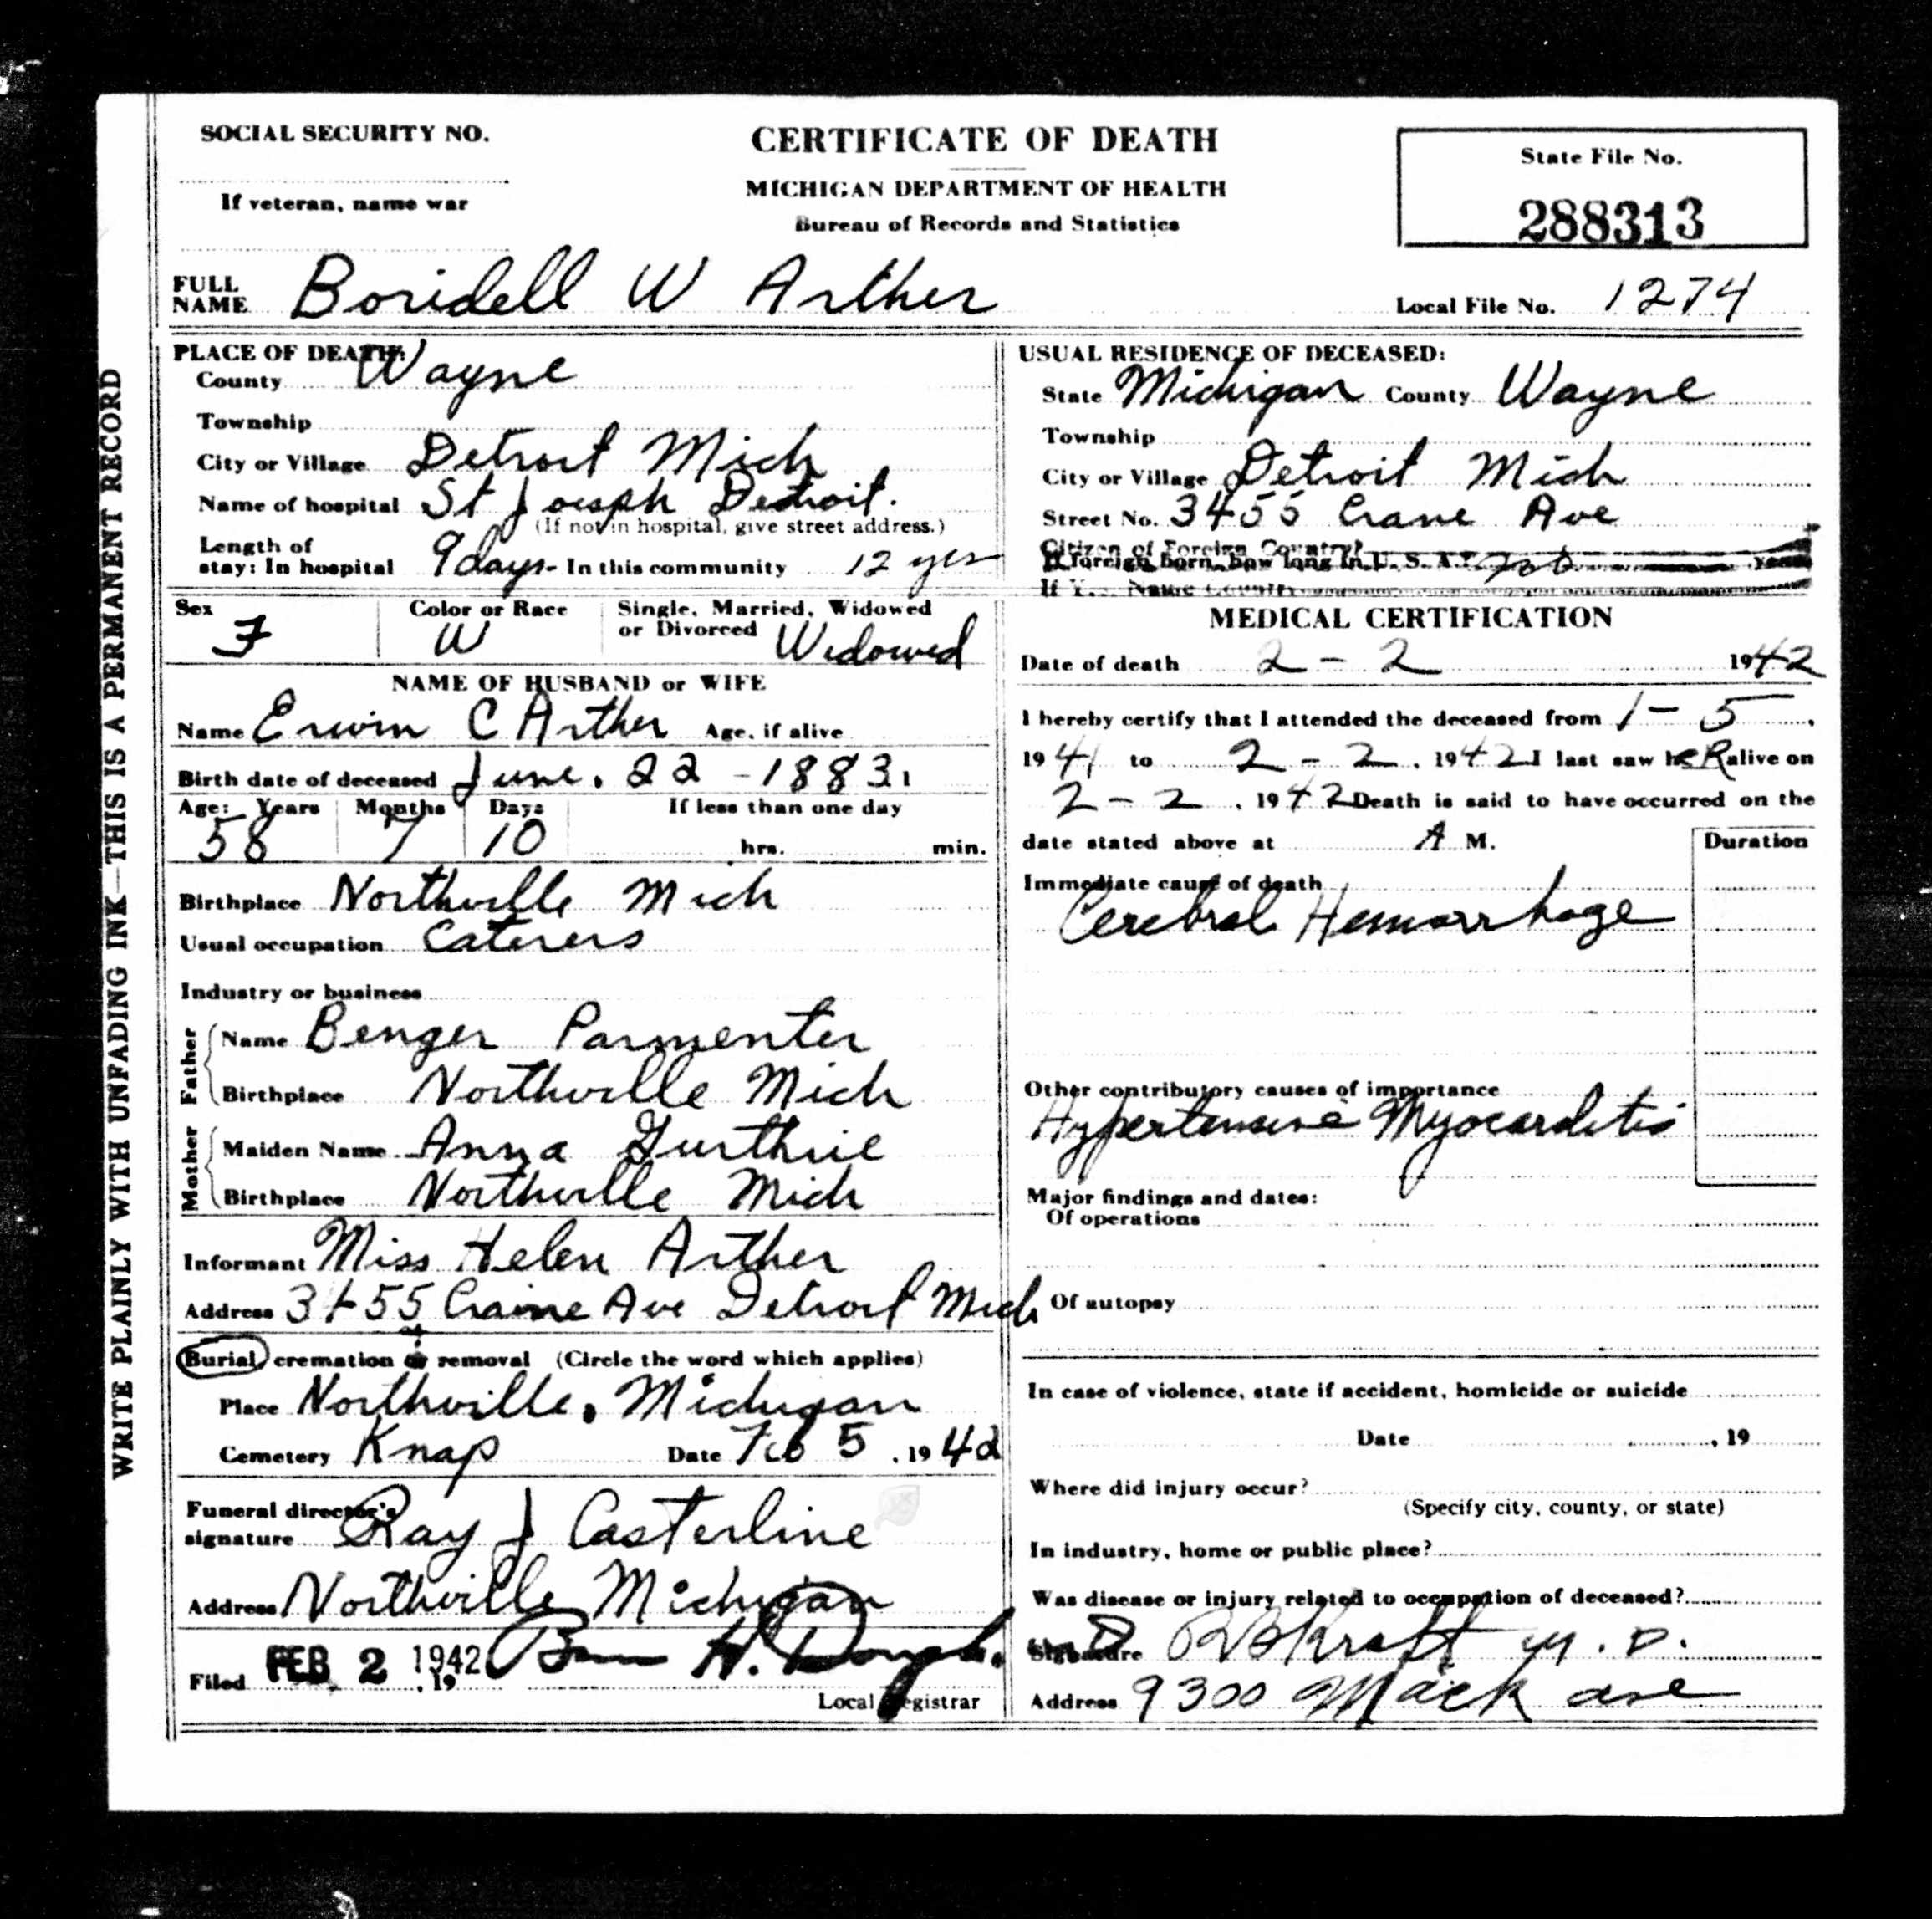 WRITE PLAINLY WITH UNFADING INK—THIS IS A PERMANENT RECORD
SOCIAL SECURITY NO.
If veteran, name war
CERTIFICATE OF DEATH
MICHIGAN DEPARTMENT OF HEALTH
Bureau of Records and Statistics
State File No.
288313
FULL NAME Boridell W Arther
Local File No. 1274
PLACE OF DEATH:
County Wayne
Township
City or Village Detroit Mich
Name of hospital St Joesph Detroit.
(If not in hospital, give street address.)
Length of
stay: In hospital 9 days - In this community 12 yrs
Sex F
Color or Race W
Single, Married, Widowed
or Divorced Widowed
NAME OF HUSBAND or WIFE
Name Erwin C Arther Age, if alive
Birth date of deceased June. 22 - 1883
Age: Years Months Days If less than one day
58 7 10 hrs. min.
Birthplace Northville Mich
Usual occupation Caterers
Industry or business
Father
Name Benger Parmenter
Birthplace Northville Mich
Mother
Maiden Name Anna Gurthrie
Birthplace Northville Mich
Informant Miss Helen Arther
Address 3455 Craine Ave Detroit Mich
Burial, cremation or removal (Circle the word which applies)
Place Northville, Michigan
Cemetery Knap Date Feb 5, 1942
Funeral director's
signature Ray J Casterline
Address Northville Michigan
Filed FEB 2 1942, 19
Local Registrar
USUAL RESIDENCE OF DECEASED:
State Michigan County Wayne
Township
City or Village Detroit Mich
Street No. 3455 Crane Ave
Citizen of Foreign Country?
If foreign born, how long in U. S. A.? years
MEDICAL CERTIFICATION
Date of death 2 - 2 1942
I hereby certify that I attended the deceased from 1 - 5,
1941 to 2 - 2, 1942 I last saw heR alive on
2 - 2, 1942 Death is said to have occurred on the
date stated above at A M.
Duration
Immediate cause of death
Cerebral Hemorrhage
Other contributory causes of importance
Hypertensive Myocarditis
Major findings and dates:
Of operations
Of autopsy
In case of violence, state if accident, homicide or suicide
Date , 19
Where did injury occur?
(Specify city, county, or state)
In industry, home or public place?
Was disease or injury related to occupation of deceased?
Signature Kraft M.D.
Address 9300 Mack ave